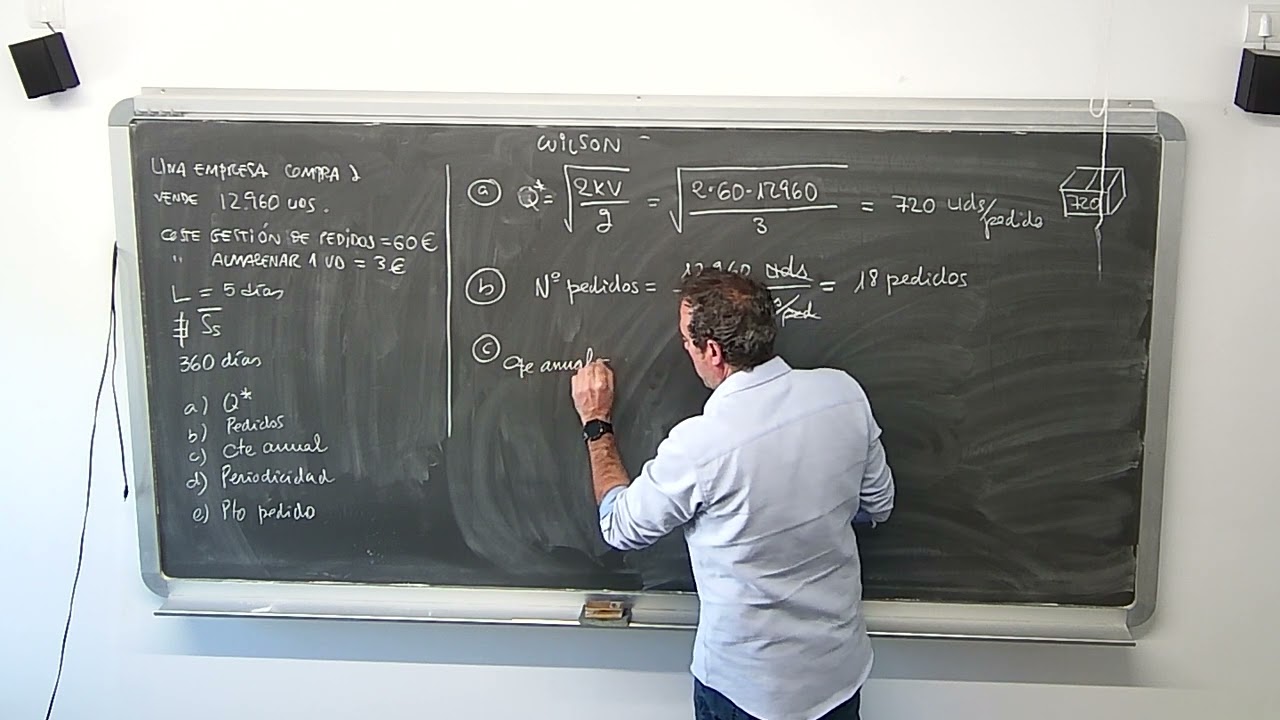 UNA EMPRESA COMPRA Y
VENDE 12.960 UDS.
COSTE GESTIÓN DE PEDIDOS = 60 €
" ALMACENAR 1 UD = 3 €
L = 5 días
∄ Ss
360 días
a) Q*
b) Pedidos
c) Cte anual
d) Periodicidad
e) Pto pedido
WILSON
a Q* = √(2KV/g) = √(2·60·12960/3) = 720 uds/pedido
720
b Nº pedidos = 12.960 uds / = 18 pedidos
c Cte anual =